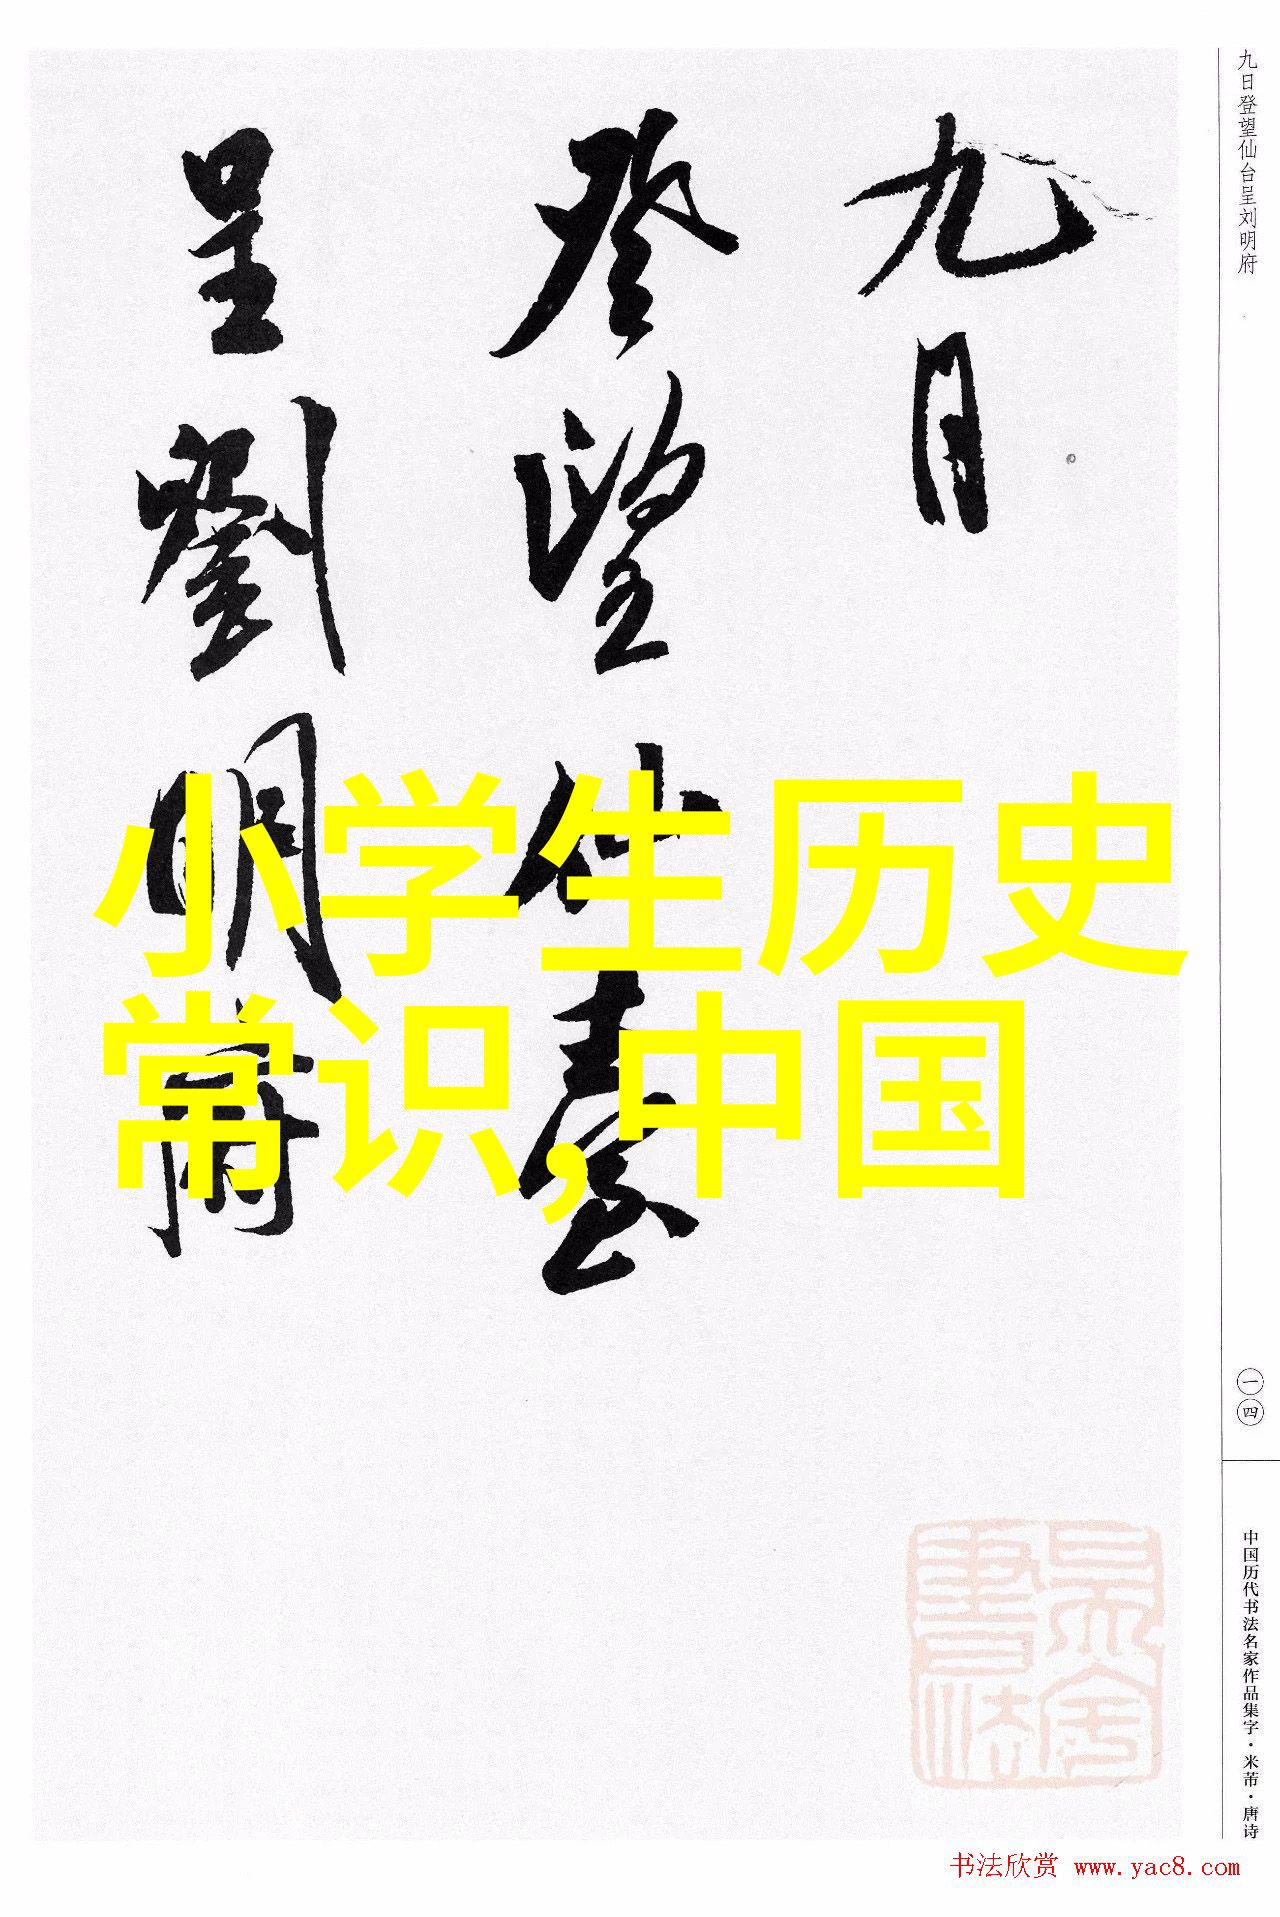 九日
登望仙臺
呈劉明府
小学生历史
常识,中国
九日登望仙台呈刘明府
一四
中国历代书法名家作品集字·米芾·唐诗
书法欣赏 www.yac8.com